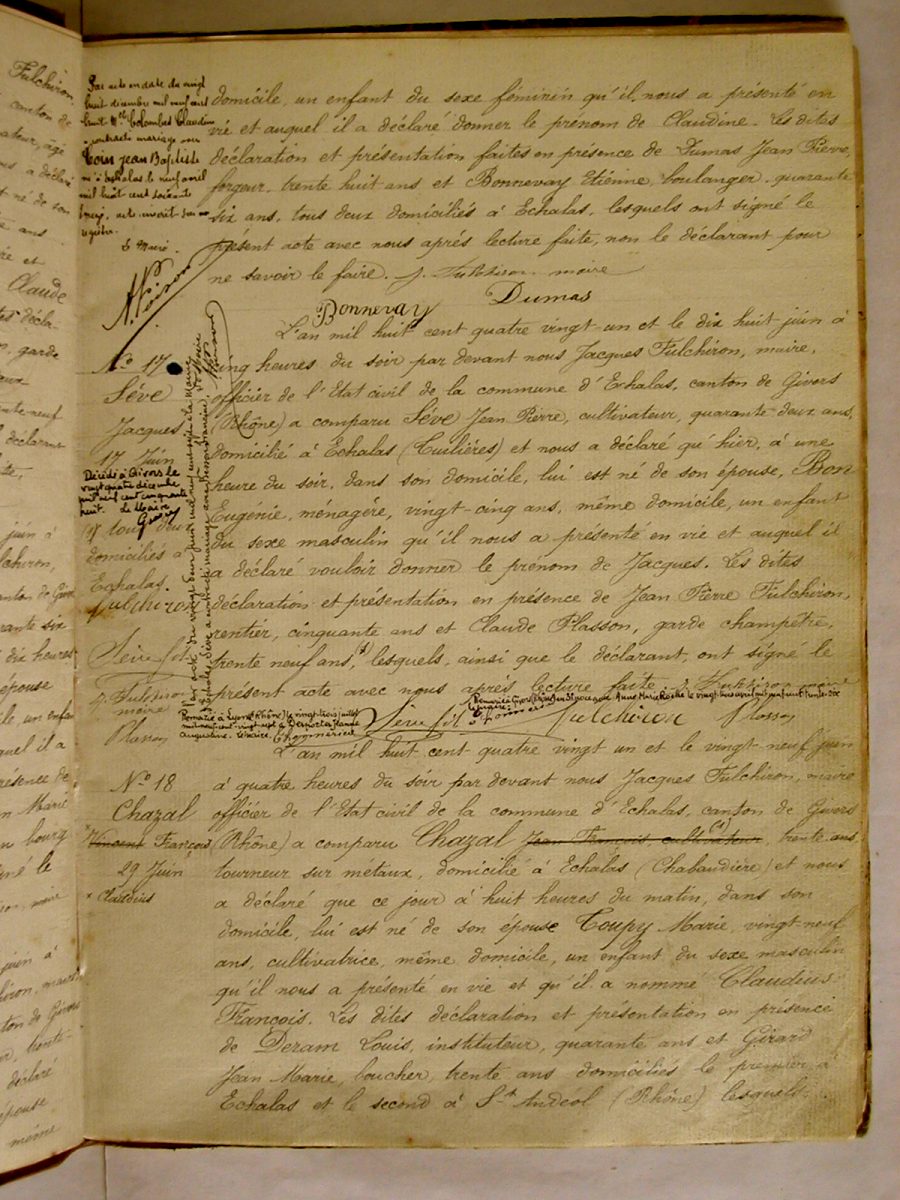 Fulchiron,
canton de
ateur, âgé
a déclaré
est né de son
ans
et
Claude
décla-
garde
neuf
déclarant
juin à
canton de Givors
rante six
dix heures
épouse
un enfant
quel il a
présence de
Marie
bourg
né le
maire
juin à
ton de Givors
trente
déclaré
épouse
même
Par acte en date du vingt
huit décembre mil neuf cent
huit Colombet Claudine
a contracté mariage avec
Tours Jean Baptiste
né à Echalas le neuf avril
mil huit cent soixante
registre.
Le Maire.
domicile, un enfant du sexe féminin qu'il nous a présenté en
vie et auquel il a déclaré donner le prénom de Claudine. Les dites
déclaration et présentation faites en présence de Dumas Jean Pierre,
forgeur, trente huit ans et Bonnevay Etienne, boulanger, quarante
six ans, tous deux domiciliés à Echalas, lesquels ont signé le
présent acte avec nous après lecture faite, non le déclarant pour
ne savoir le faire. J. Fulchiron maire
Bonnevay Dumas
No 17
Séve
Jacques
17 Juin
Décédé à Givors le
vingt quatre décembre
mil neuf cent cinquante
huit. Le Maire
tous deux
domiciliés à
Echalas.
Fulchiron
Séve fit
J. Fulchiron
maire
Plasson
L'an mil huit cent quatre vingt un et le dix huit juin à
cinq heures du soir par devant nous Jacques Fulchiron, maire,
officier de l'Etat civil de la commune d'Echalas, canton de Givors
(Rhône) a comparu Séve Jean Pierre, cultivateur, quarante deux ans,
domicilié à Echalas (Tuiliéres) et nous a déclaré qu'hier, à une
heure du soir, dans son domicile, lui est né de son épouse, Bon
Eugénie, ménagére, vingt-cinq ans, même domicile, un enfant
du sexe masculin qu'il nous a présenté en vie et auquel il
a déclaré vouloir donner le prénom de Jacques. Les dites
déclaration et présentation en présence de Jean Pierre Fulchiron,
rentier, cinquante ans et Claude Plasson, garde champêtre,
trente neuf ans, lesquels, ainsi que le déclarant, ont signé le
présent acte avec nous après lecture faite J. Fulchiron maire
Remarié à Givors Anne Marie Roche le vingt deux avril mil neuf cent trente six
Remarié à Lyon (Rhône) le vingt trois juillet
mil neuf cent vingt sept à
Augustine. Le Maire.
Séve fit Fulchiron Plasson
No 18
Chazal
Vincent François
29 Juin
x Claudius
L'an mil huit cent quatre vingt un et le vingt-neuf juin
à quatre heures du soir par devant nous Jacques Fulchiron, maire
officier de l'Etat civil de la commune d'Echalas, canton de Givors
(Rhône) a comparu Chazal Jean François cultivateur, trente ans,
tourneur sur métaux, domicilié à Echalas (Chabaudière) et nous
a déclaré que ce jour à huit heures du matin, dans son
domicile, lui est né de son épouse Toupy Marie, vingt-neuf
ans, cultivatrice, même domicile, un enfant du sexe masculin
qu'il nous a présenté en vie et qu'il a nommé Claudius
François. Les dites déclaration et présentation en présence
de Deram Louis, instituteur, quarante ans et Girard
Jean Marie, boucher, trente ans domiciliés le premier à
Echalas et le second à St Andeol (Rhône) lesquels